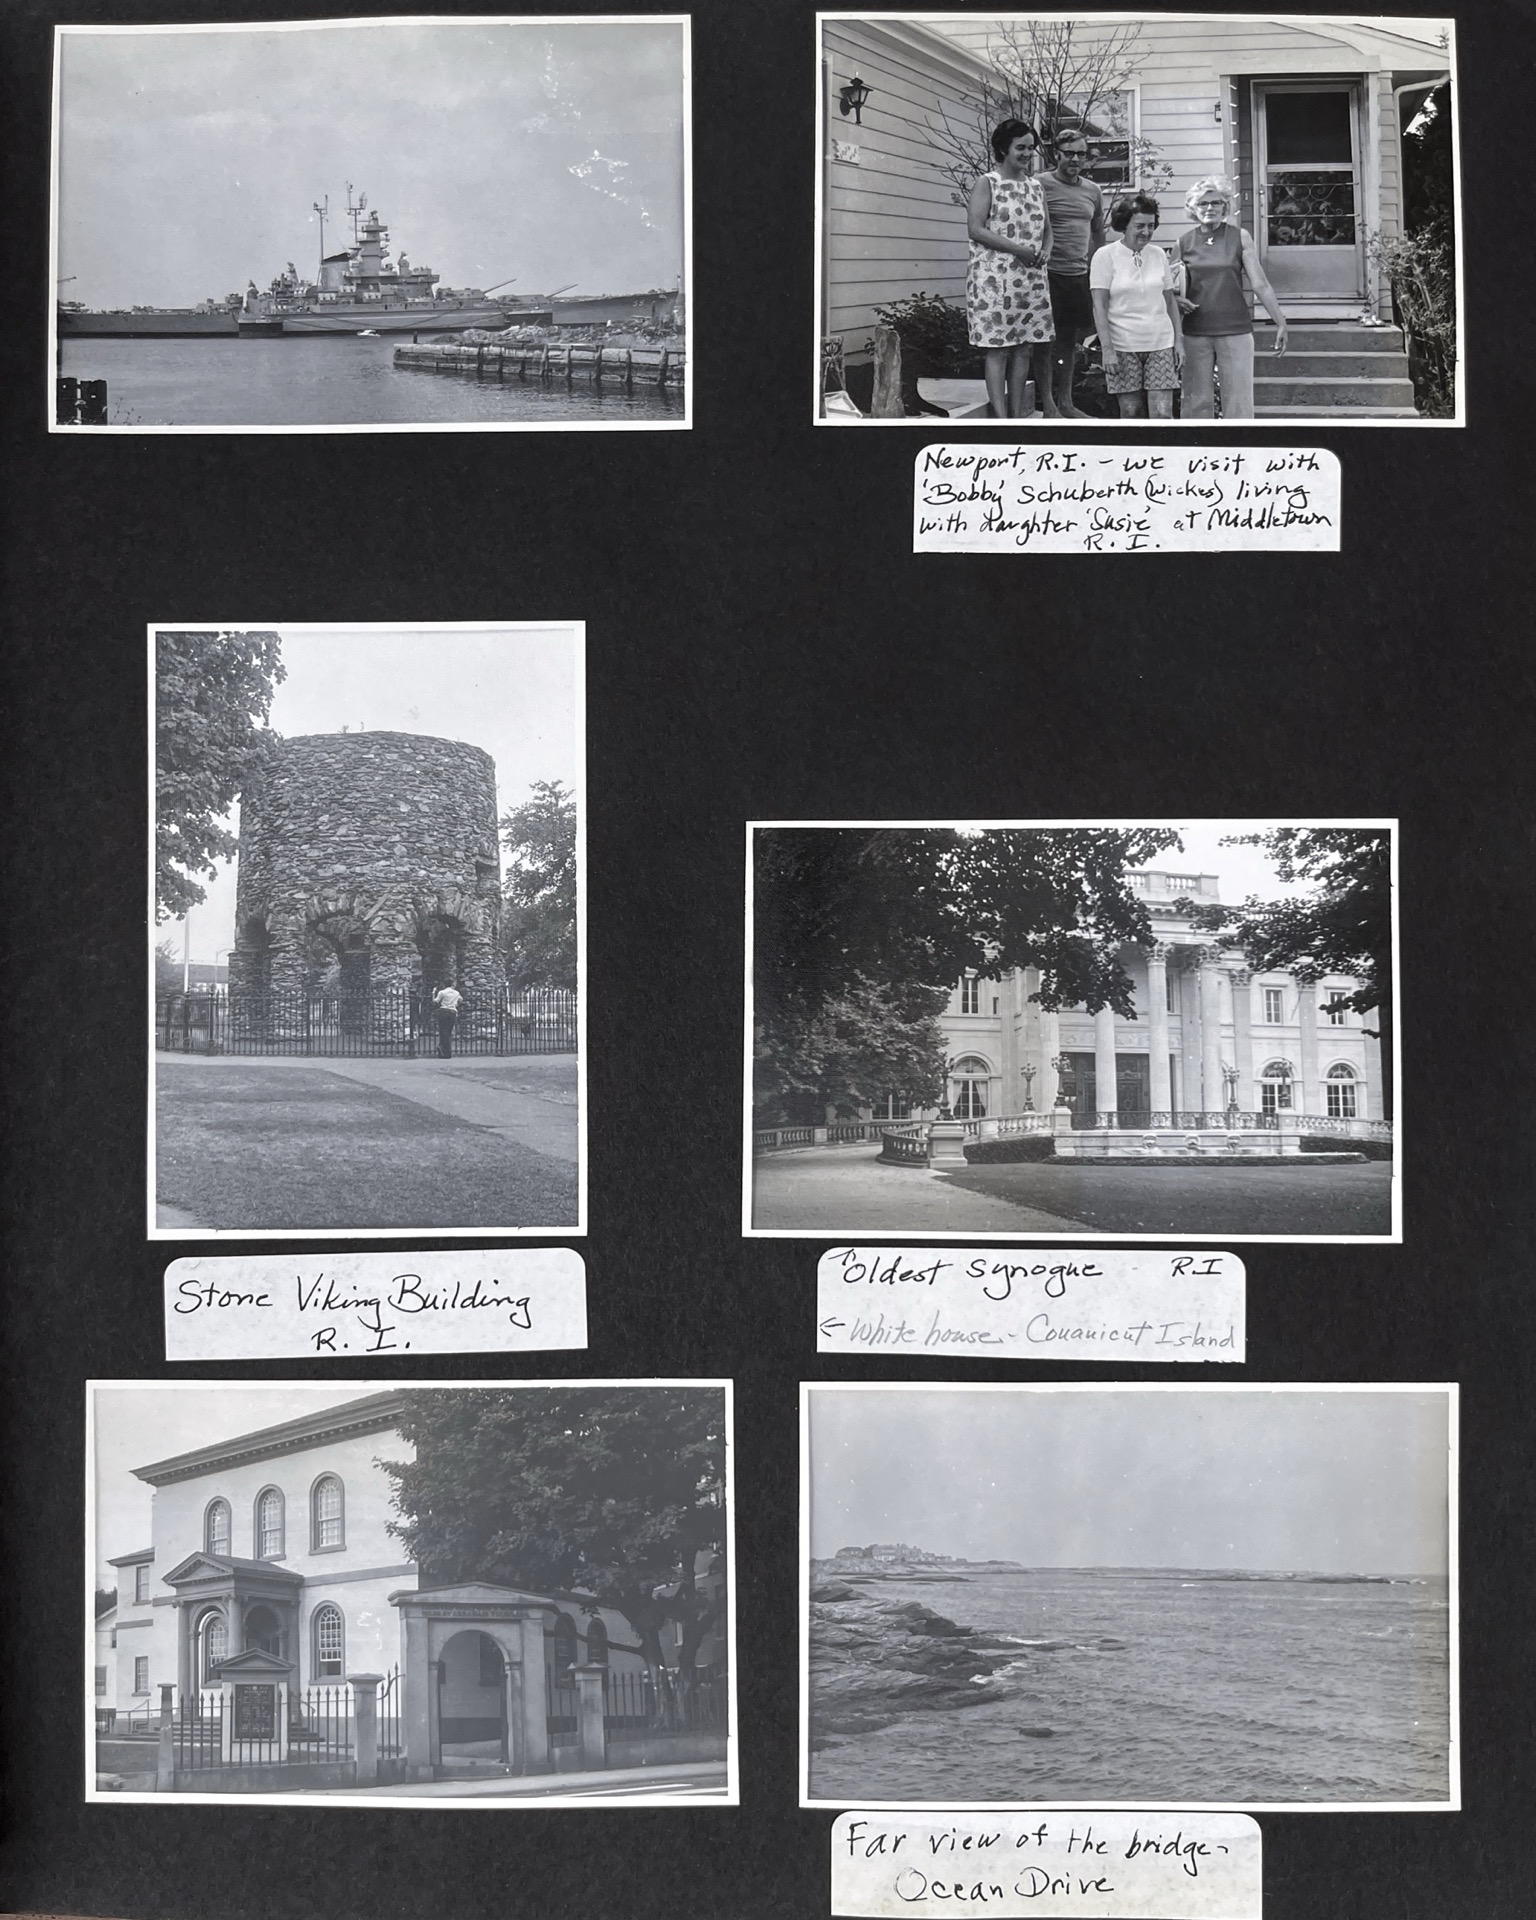 Newport, R.I. - we visit with
'Bobby' Schuberth (Wickes) living
with daughter 'Susie' at Middletown
R. I.
Stone Viking Building
R. I.
↑ Oldest Synogue - R.I
← White house - Conanicut Island
Far view of the bridge -
Ocean Drive